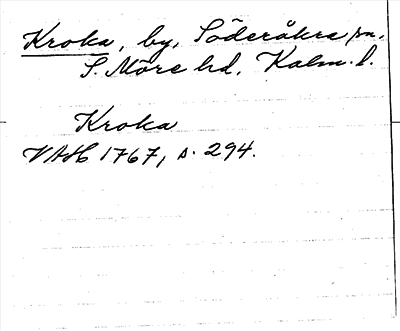 Kroka, by, Söderåkra sn,
S. Möre hd, Kalm. l.
Kroka
VAH 1767, s. 294.